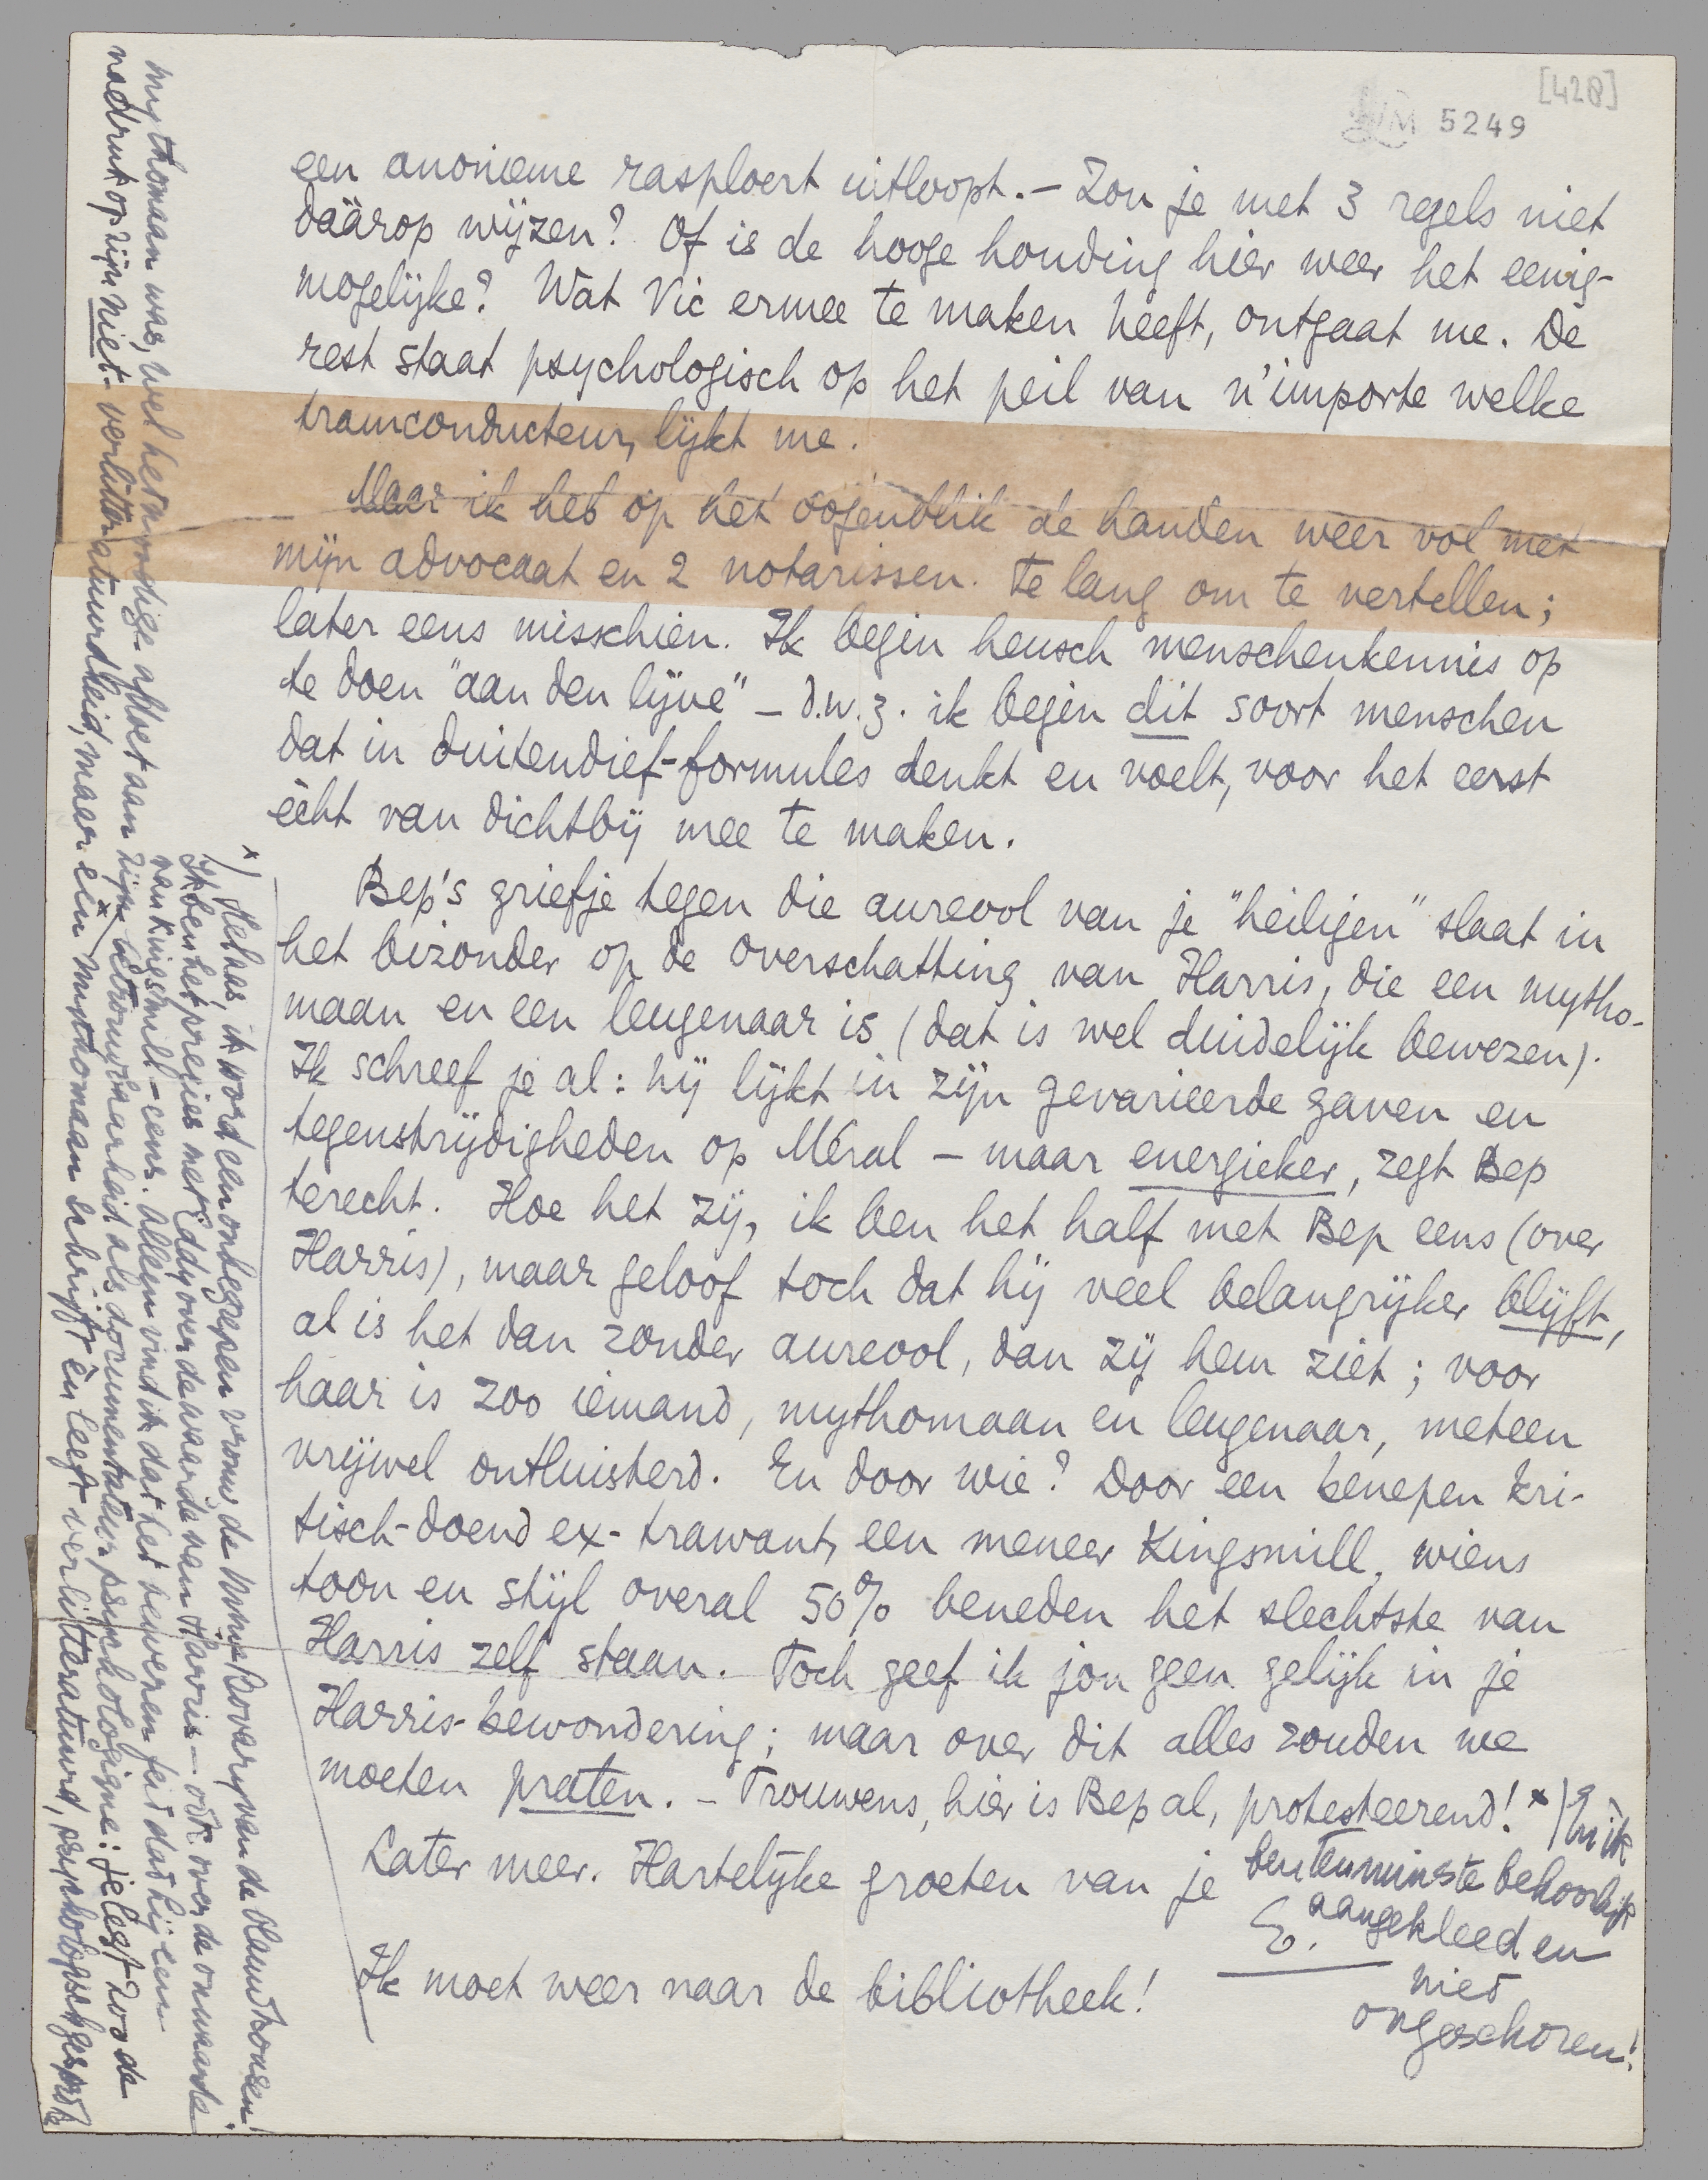 [428]
LM 5249
een anonieme rasploert uitloopt. – Zou je met 3 regels niet
dáárop wijzen? Of is de hooge houding hier weer het eenig-
mogelijke? Wat Vic ermee te maken heeft, ontgaat me. De
rest staat psychologisch op het peil van n'importe welke
tramconducteur, lijkt me.
Maar ik heb op het oogenblik de handen weer vol met
mijn advocaat en 2 notarissen. Te lang om te vertellen;
later eens misschien. Ik begin heusch menschenkennis op
te doen "aan den lijve" – d.w.z. ik begin dit soort menschen
dat in duitendief-formules denkt en voelt, voor het eerst
écht van dichtbij mee te maken.
Bep's griefje tegen die aureool van je "heiligen" slaat in
het bizonder op de overschatting van Harris, die een mytho-
maan en een leugenaar is (dat is wel duidelijk bewezen).
Ik schreef je al: hij lijkt in zijn gevarieerde gaven en
tegenstrijdigheden op Méral – maar energieker, zegt Bep
terecht. Hoe het zij, ik ben het half met Bep eens (over
Harris), maar geloof toch dat hij veel belangrijker blijft,
al is het dan zonder aureool, dan zij hem ziet; voor
haar is zoo iemand, mythomaan en leugenaar, meteen
vrijwel ontluisterd. En door wie? Door een benepen kri-
tisch-doend ex-trawant, een meneer Kingsmill, wiens
toon en stijl overal 50% beneden het slechtste van
Harris zelf staan. Toch geef ik jou geen gelijk in je
Harris-bewondering; maar over dit alles zouden we
moeten praten. – Trouwens, hier is Bep al, protesteerend! x)
Later meer. Hartelijke groeten van je
E.
Ik moet weer naar de bibliotheek!
En ik
ben tenminste behoorlijk
aangekleed en
niet
ongeschoren!
x) Helaas, ik word een onbegrepen vrouw, de Mme Bovary van de Hamtonsen!
Ik ben het precies met Eddy over de waarde van Harris – ook over de onwaarde
van Kingsmill – eens. Alleen vind ik dat het bewezen feit dat hij een
mythomaan was, wel het noodige afdoet aan zijn betrouwbaarheid als documentateur-psychologique: je legt zoo de
nadruk op zijn niet-verlitteratuurdheid, maar een x mythomaan schrijft èn leeft verlitteratuurd, psychologisch gesproken